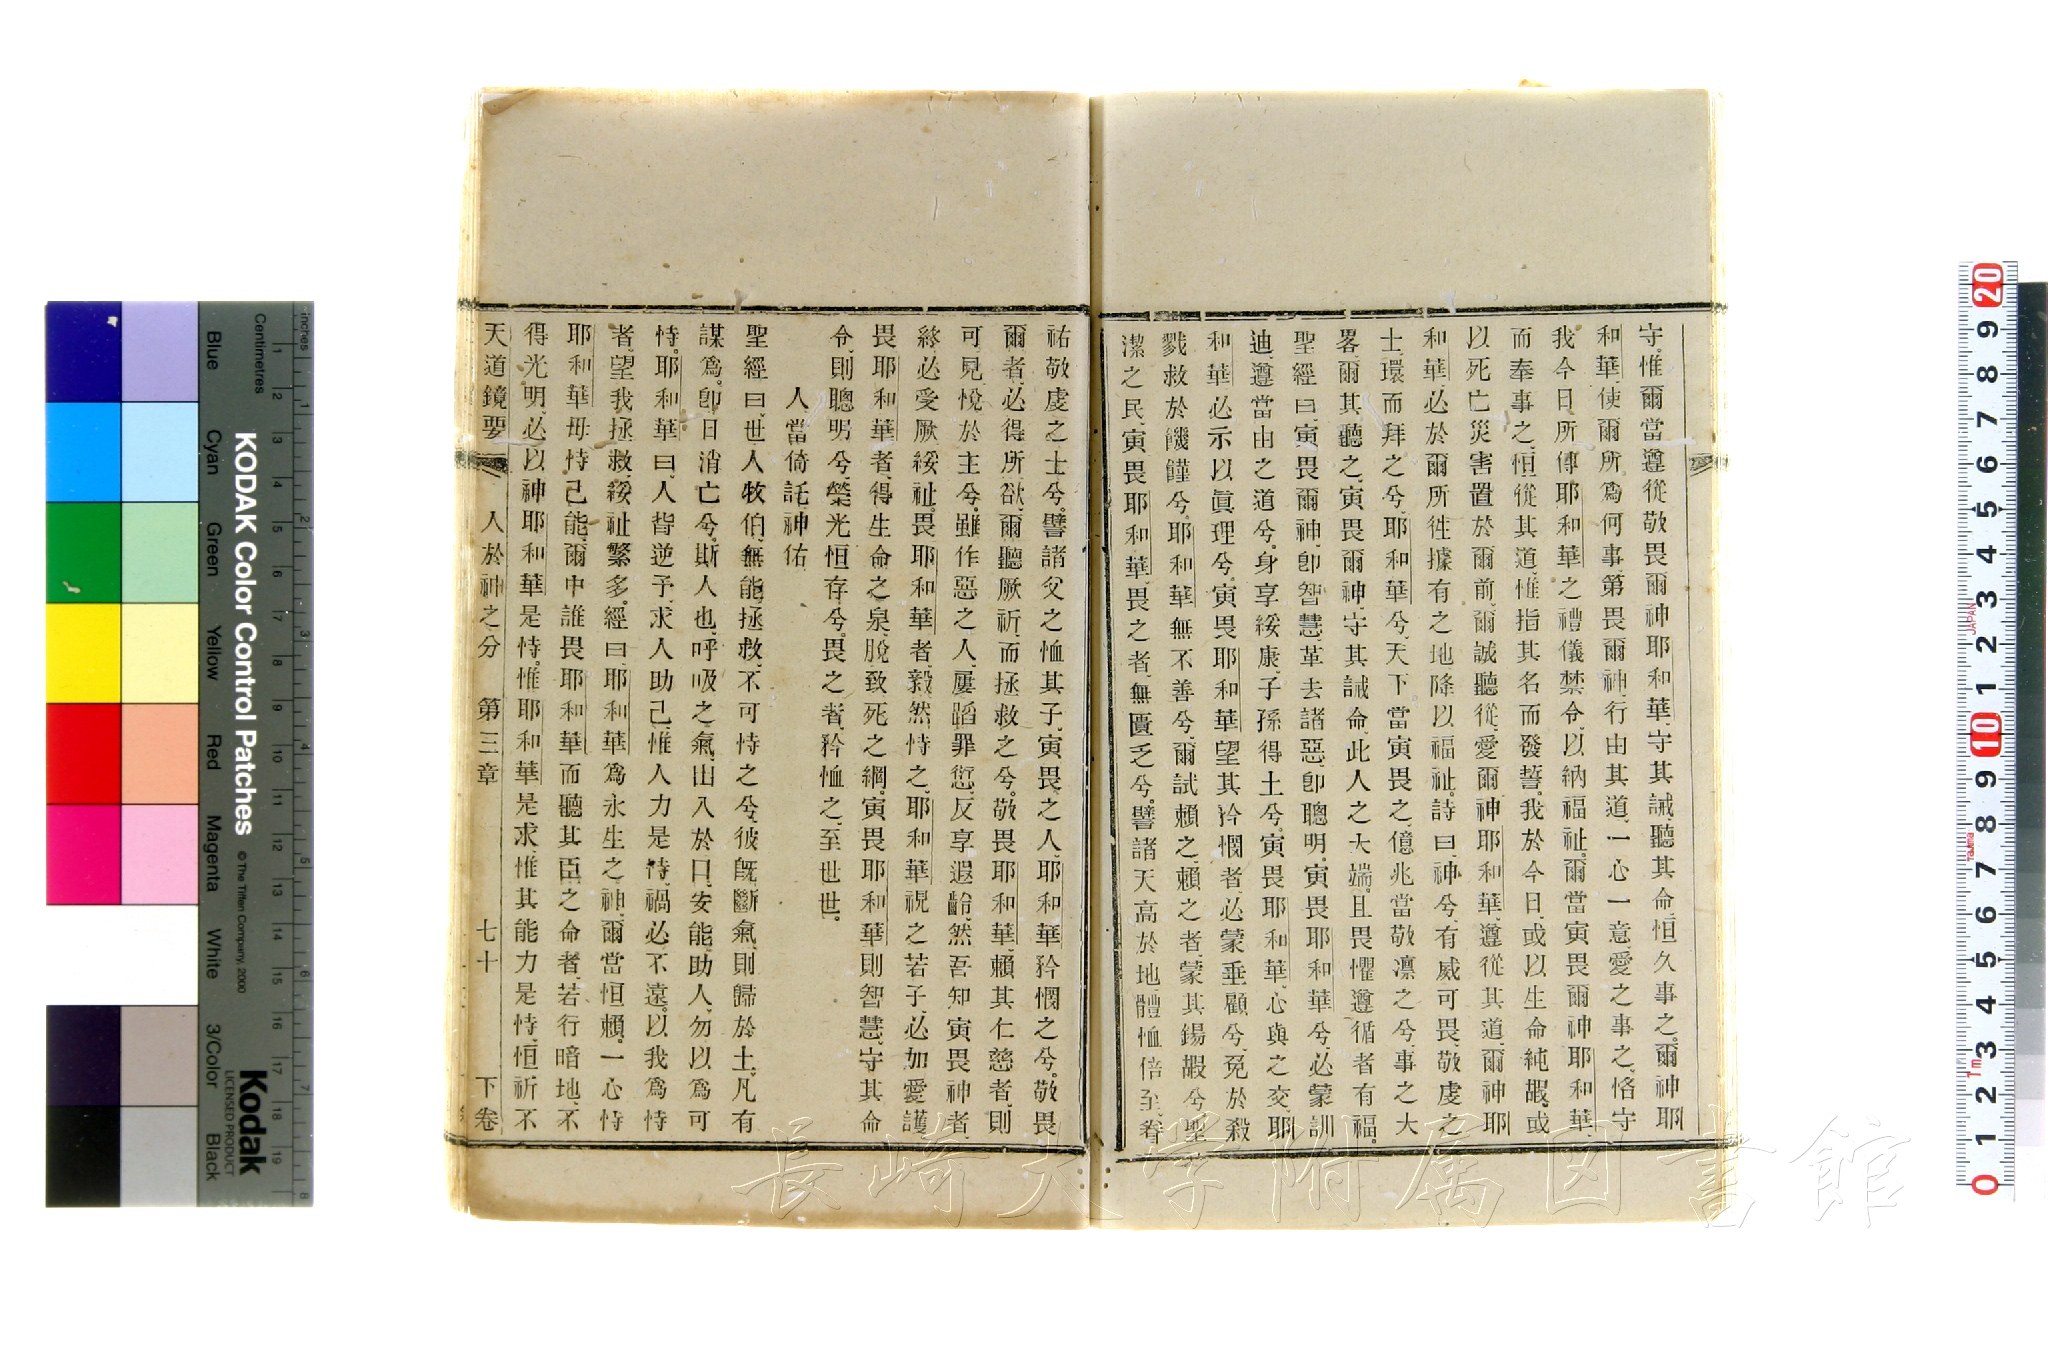 守、惟爾當遵從敬畏爾神耶和華、守其誡、聽其命、恒久事之。爾神耶
和華、使爾所爲何事、第畏爾神、行由其道、一心一意、愛之事之、恪守
我今日、所傳耶和華之禮儀禁令、以納福祉。爾當寅畏爾神耶和華、
而奉事之、恒從其道、惟指其名而發誓。我於今日、或以生命純嘏、或
以死亡災害、置於爾前、爾誠聽從、愛爾神耶和華、遵從其道、爾神耶
和華、必於爾所徃據有之地、降以福祉。詩曰、神兮、有威可畏、敬虔之
士、環而拜之兮、耶和華兮、天下當寅畏之、億兆當敬凛之兮、事之大
畧、爾其聽之、寅畏爾神、守其誡命、此人之大端。且畏懼遵循者有福。
聖經曰、寅畏爾神、卽智慧、革去諸惡、卽聰明。寅畏耶和華兮、必蒙訓
迪、遵當由之道兮。身享綏康、子孫得土兮。寅畏耶和華、心與之交、耶
和華必示以眞理兮。寅畏耶和華、望其矜憫者、必蒙垂顧兮、免於殺
戮、救於饑饉兮。耶和華無不善兮、爾試賴之、賴之者、蒙其錫嘏兮。聖
潔之民、寅畏耶和華、畏之者、無匱乏兮。譬諸天高於地、體恤倍至、眷
祐敬虔之士兮。譬諸父之恤其子、寅畏之人、耶和華矜憫之兮。敬畏
爾者、必得所欲、爾聽厥祈、而拯救之兮。敬畏耶和華、賴其仁慈者、則
可見悅於主兮。雖作惡之人、屢蹈罪愆、反享遐齡、然吾知寅畏神者、
終必受厥綏祉。畏耶和華者、毅然恃之、耶和華視之若子、必加愛護。
畏耶和華者、得生命之泉、脫致死之網。寅畏耶和華則智慧、守其命
令、則聰明兮、榮光恒存兮。畏之者、矜恤之、至世世。
人當倚託神佑
聖經曰、世人牧伯、無能拯救、不可恃之兮、彼旣斷氣、則歸於土、凡有
謀爲、卽日消亡兮。斯人也、呼吸之氣、出入於口、安能助人、勿以爲可
恃。耶和華曰、人皆逆予、求人助己、惟人力是恃、禍必不遠。以我爲恃
者、望我拯救、綏祉繁多。經曰、耶和華爲永生之神、爾當恒賴。一心恃
耶和華、毋恃己能。爾中誰畏耶和華、而聽其臣之命者、若行暗地、不
得光明、必以神耶和華是恃。惟耶和華是求、惟其能力是恃、恒祈不
天道鏡要 人於神之分 第三章 七十 下卷
KODAK Color Control Patches © The Tiffen Company, 2000
Kodak
LICENSED PRODUCT
Inches
Centimetres
Blue Cyan Green Yellow Red Magenta White 3/Color Black
長崎大学附属図書館